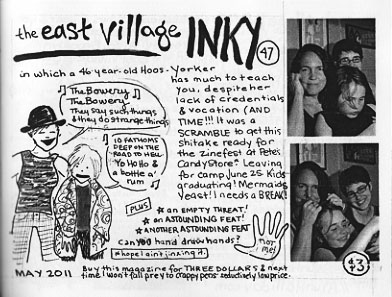 the east village INKY
47
in which a 46-year-old Hoos-Yorker
has much to teach
you, despite her
lack of credentials
& vocation (AND
TIME!!! It was a
SCRAMBLE to get this
shitake ready for
the zinefest at Pete's
CandyStore. Leaving
for camp June 25. Kids
graduating! Mermaids
Yeast! I needs a BREAK!
The Bowery
The Bowery
They say such things
& they do strange things
10 FATHOMS
DEEP ON THE
ROAD TO HELL
Yo Ho Ho &
a bottle a'
rum
PLUS
★ an EMPTY THREAT!
★ an ASTOUNDING FEAT!
★ ANOTHER ASTOUNDING FEAT
can YOU hand draw hands?
#hope I ain't jinxing it.
not me!
MAY 2011
Buy this magazine for THREE DOLLARS & next
time I won't fall prey to crappy pens' seductively low price.
$3